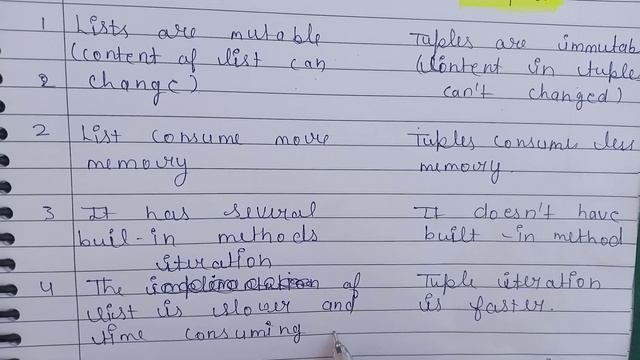 1 Lists are mutable Tuples are immutab
(content of list can (Content in tuples
2 change) can't changed)
2 List consume more Tuples consume less
memory memory.
3 It has several It doesn't have
buil-in methods built-in method
iteration
4 The of Tuple iteration
list is slower and is faster.
time consuming